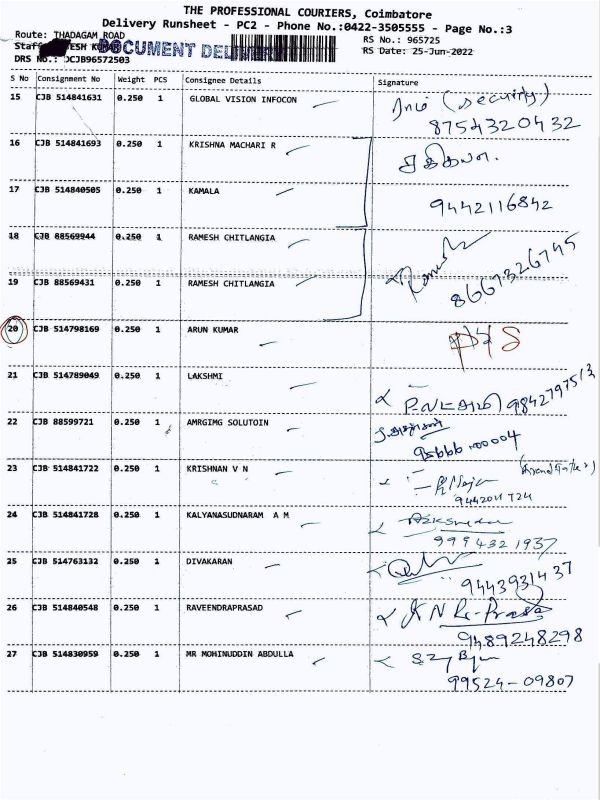 THE PROFESSIONAL COURIERS, Coimbatore
Delivery Runsheet - PC2 - Phone No.:0422-3505555 - Page No.:3
Route: THADAGAM ROAD
RS No.: 965725
DOCUMENT
RS Date: 25-Jun-2022
DRS No.: DCJB96572503
S No Consignment No Weight PCS Consignee Details Signature
15 CJB 514841631 0.250 1 GLOBAL VISION INFOCON (security)
8754320432
16 CJB 514841693 0.250 1 KRISHNA MACHARI R
17 CJB 514840505 0.250 1 KAMALA 9442116842
18 CJB 88569944 0.250 1 RAMESH CHITLANGIA
8667326745
19 CJB 88569431 0.250 1 RAMESH CHITLANGIA
20 CJB 514798169 0.250 1 ARUN KUMAR
21 CJB 514789049 0.250 1 LAKSHMI
22 CJB 88599721 0.250 1 AMRGIMG SOLUTOIN
23 CJB 514841722 0.250 1 KRISHNAN V N
24 CJB 514841728 0.250 1 KALYANASUDNARAM A M
9994321937
25 CJB 514763132 0.250 1 DIVAKARAN
9443931437
26 CJB 514840548 0.250 1 RAVEENDRAPRASAD
9489248298
27 CJB 514830959 0.250 1 MR MOHINUDDIN ABDULLA
99524-09807